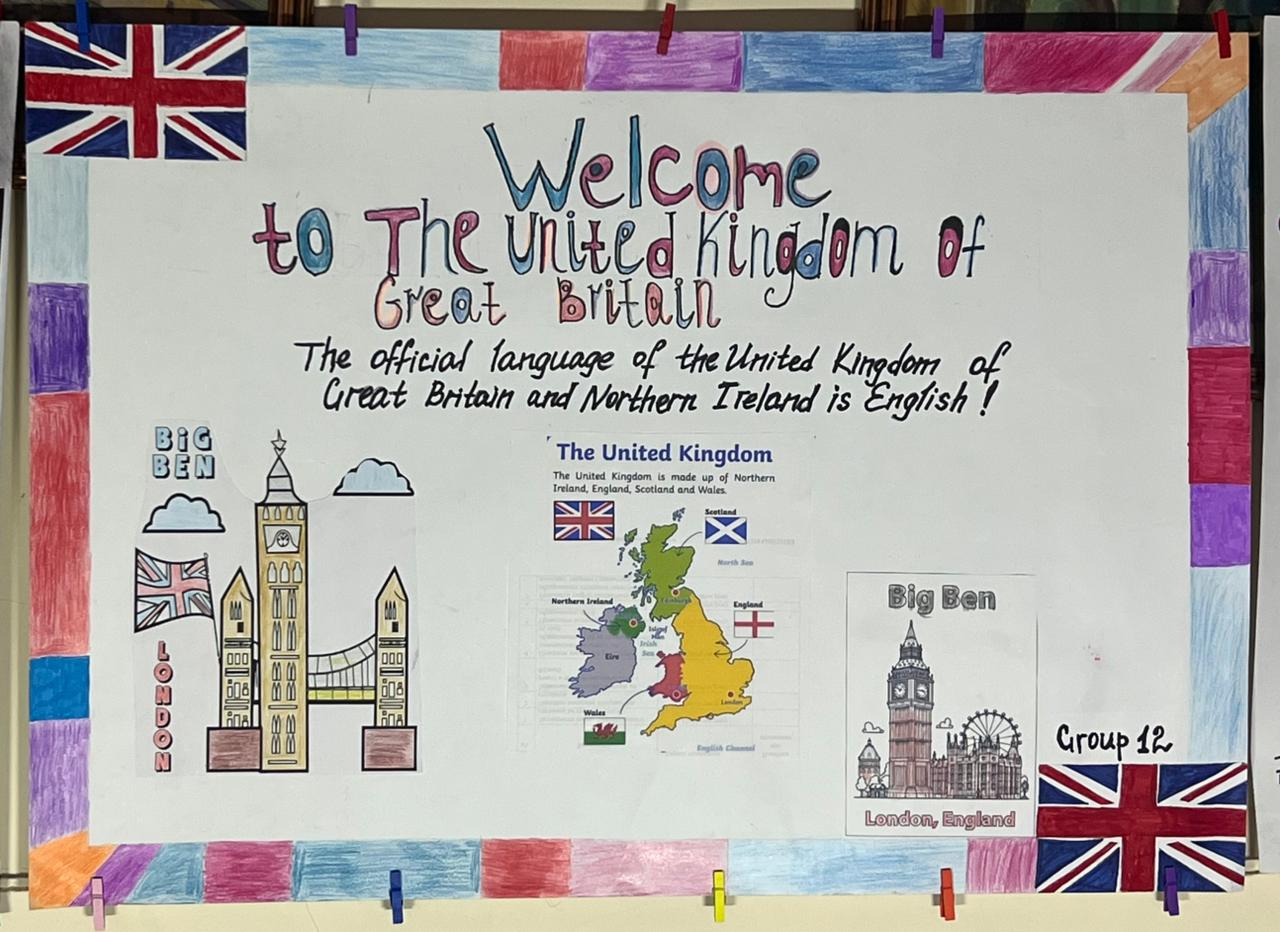 Welcome
to The United Kingdom Of
Great Britain
The official language of the United Kingdom of
Great Britain and Northern Ireland is English!
BiG
BEN
LONDON
The United Kingdom
The United Kingdom is made up of Northern
Ireland, England, Scotland and Wales.
Scotland
North Sea
Edinburgh
Northern Ireland
England
Isle of
Man
Irish
Sea
Eire
London
Wales
English Channel
Big Ben
London, England
Group 12